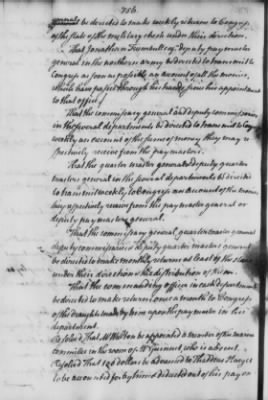 756.
generals be directed to make weekly returns to Congress
of the state of the military chests under their direction.
That Jonathan Trumbull esqr. deputy pay master
general in the northern army be directed to transmit to
Congress as soon as possible an account of all the monies,
which have passed through his hands from his appointment
to that office
That the commissary general and deputy commissaries
in the several departments be directed to transmit to Congress
weekly an account of the sums of money they may re
spectively receive from the pay masters.
That the quarter master general & deputy quarter
masters general in the several departments be directed
to transmit weekly to Congress an account of the monies
they respectively receive from the pay master general or
deputy pay masters general.
That the commissary general, quarter master general
deputy commissaries & deputy quarter masters general
be directed to make monthly returns at least of the stores
under their direction & the distribution of them.
That the commanding officer in each department
be directed to make returns once a month to Congress
of the draughts made by him upon the pay master in his
department.
Resolved That Mr Walton be appointed a member of the marine
committee in the room of Mr Gwinnet, who is absent.
Resolved That 126 dollars be advanced to
to be accounted for by him & deducted out of his pay or